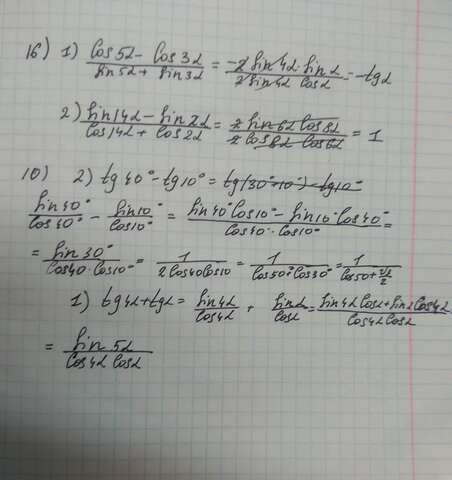 16) 1) (cos5α - cos3α)/(sin5α + sin3α) = (-2 sin4α · sinα)/(2 sin4α cosα) = -tgα
2) (sin14α - sin2α)/(cos14α + cos2α) = (2 sin6α cos8α)/(2 cos8α cos6α) = 1
10) 2) tg40° - tg10° = tg(30°+10°) - tg10°
sin40°/cos40° - sin10°/cos10° = (sin40°cos10° - sin10°cos40°)/(cos40° · cos10°) =
= sin30°/(cos40·cos10°) = 1/(2cos40cos10) = 1/(cos50°+cos30°) = 1/(cos50+√3/2)
1) tg4α+tgα = sin4α/cos4α + sinα/cosα = (sin4α cosα + sinα cos4α)/(cos4α cosα)
= sin5α/(cos4α cosα)